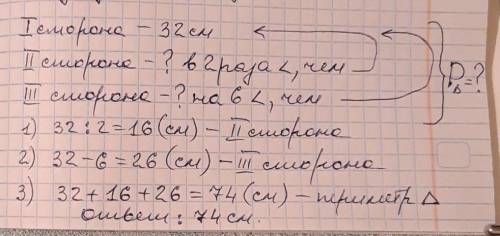 I сторона – 32 см
II сторона – ? в 2 раза <, чем
III сторона – ? на 6 <, чем
P△ = ?
1) 32 : 2 = 16 (см) – II сторона
2) 32 – 6 = 26 (см) – III сторона
3) 32 + 16 + 26 = 74 (см) – периметр △
Ответ: 74 см.